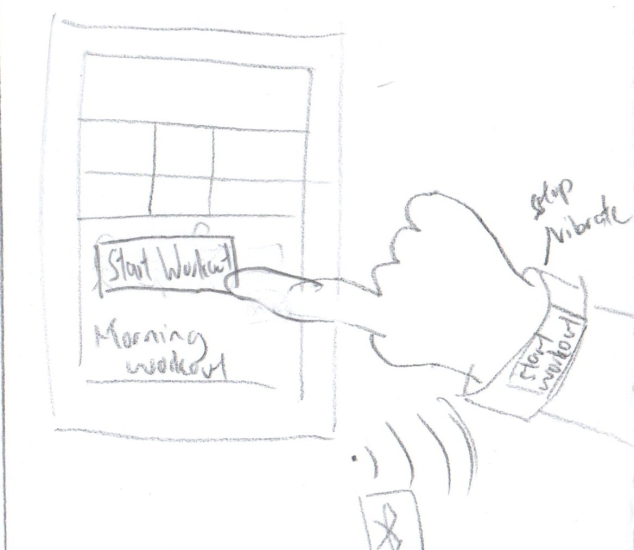 Start Workout
Morning
workout
Vibrate
start
workout